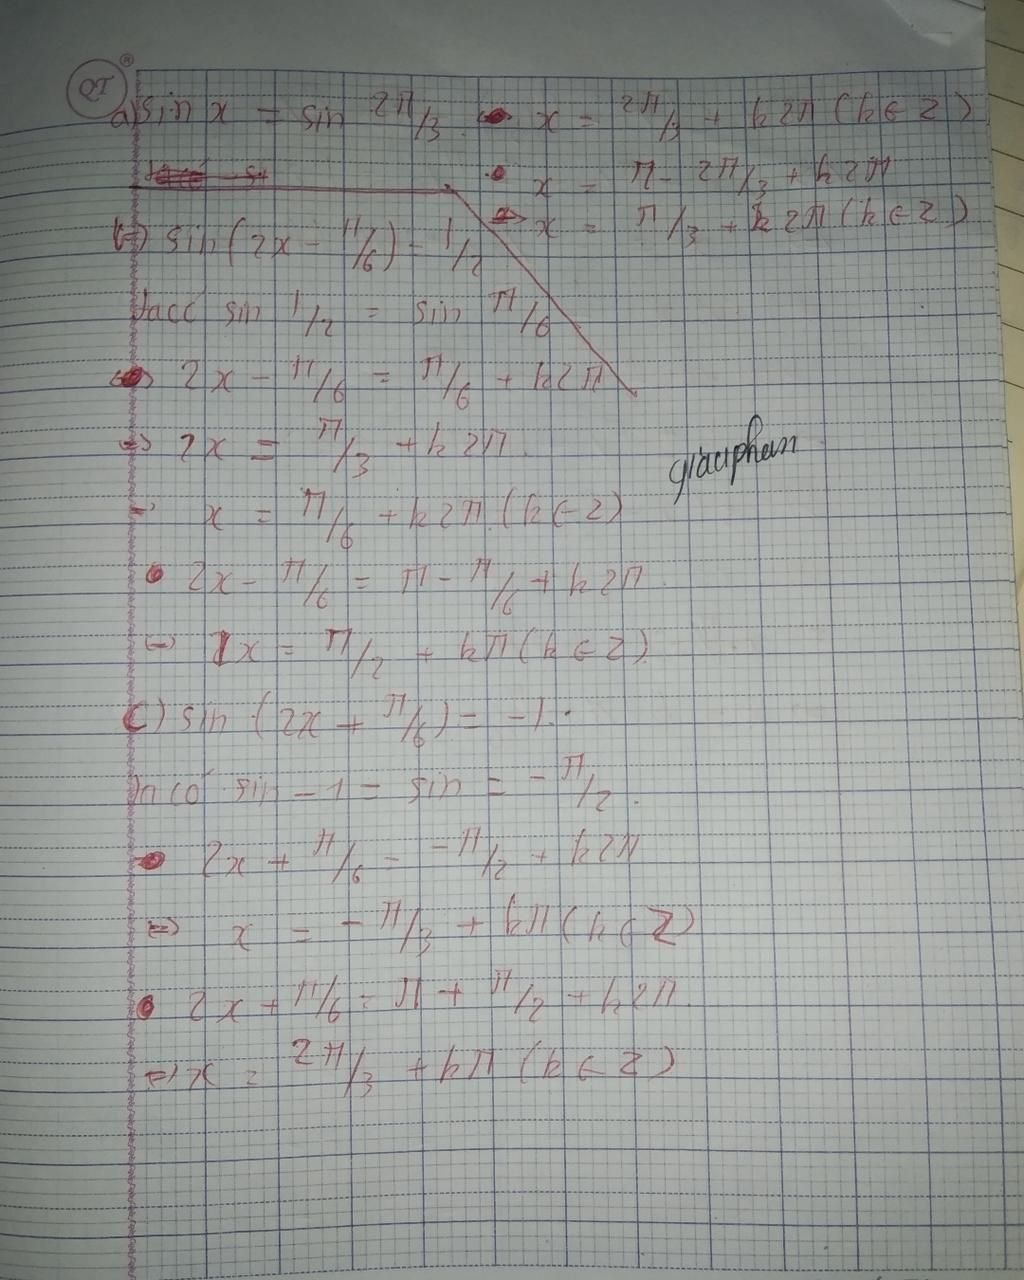 QT
a) sin x = sin 2π/3 <=> x = 2π/3 + k2π (k∈Z)
• x = π - 2π/3 + k2π
=> x = π/3 + k2π (k∈Z)
b) sin(2x - π/6) = 1/2
Ta có sin 1/2 = sin π/6
<=> 2x - π/6 = π/6 + k2π
=> 2x = π/3 + k2π
x = π/6 + k2π (k∈Z)
giauphan
• 2x - π/6 = π - π/6 + k2π
=> 1x = π/2 + kπ (k∈Z)
c) sin (2x + π/6) = -1.
Ta có sin -1 = sin = -π/2.
• 2x + π/6 = -π/2 + k2π
=> x = -π/3 + kπ (k∈Z)
• 2x + π/6 = π + π/2 + k2π
=> x = 2π/3 + kπ (k∈Z)